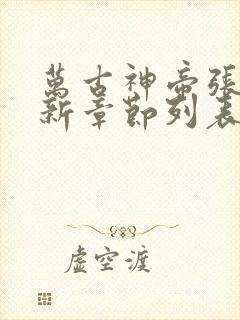 萬古神帝張
新章節列表
虛空渡